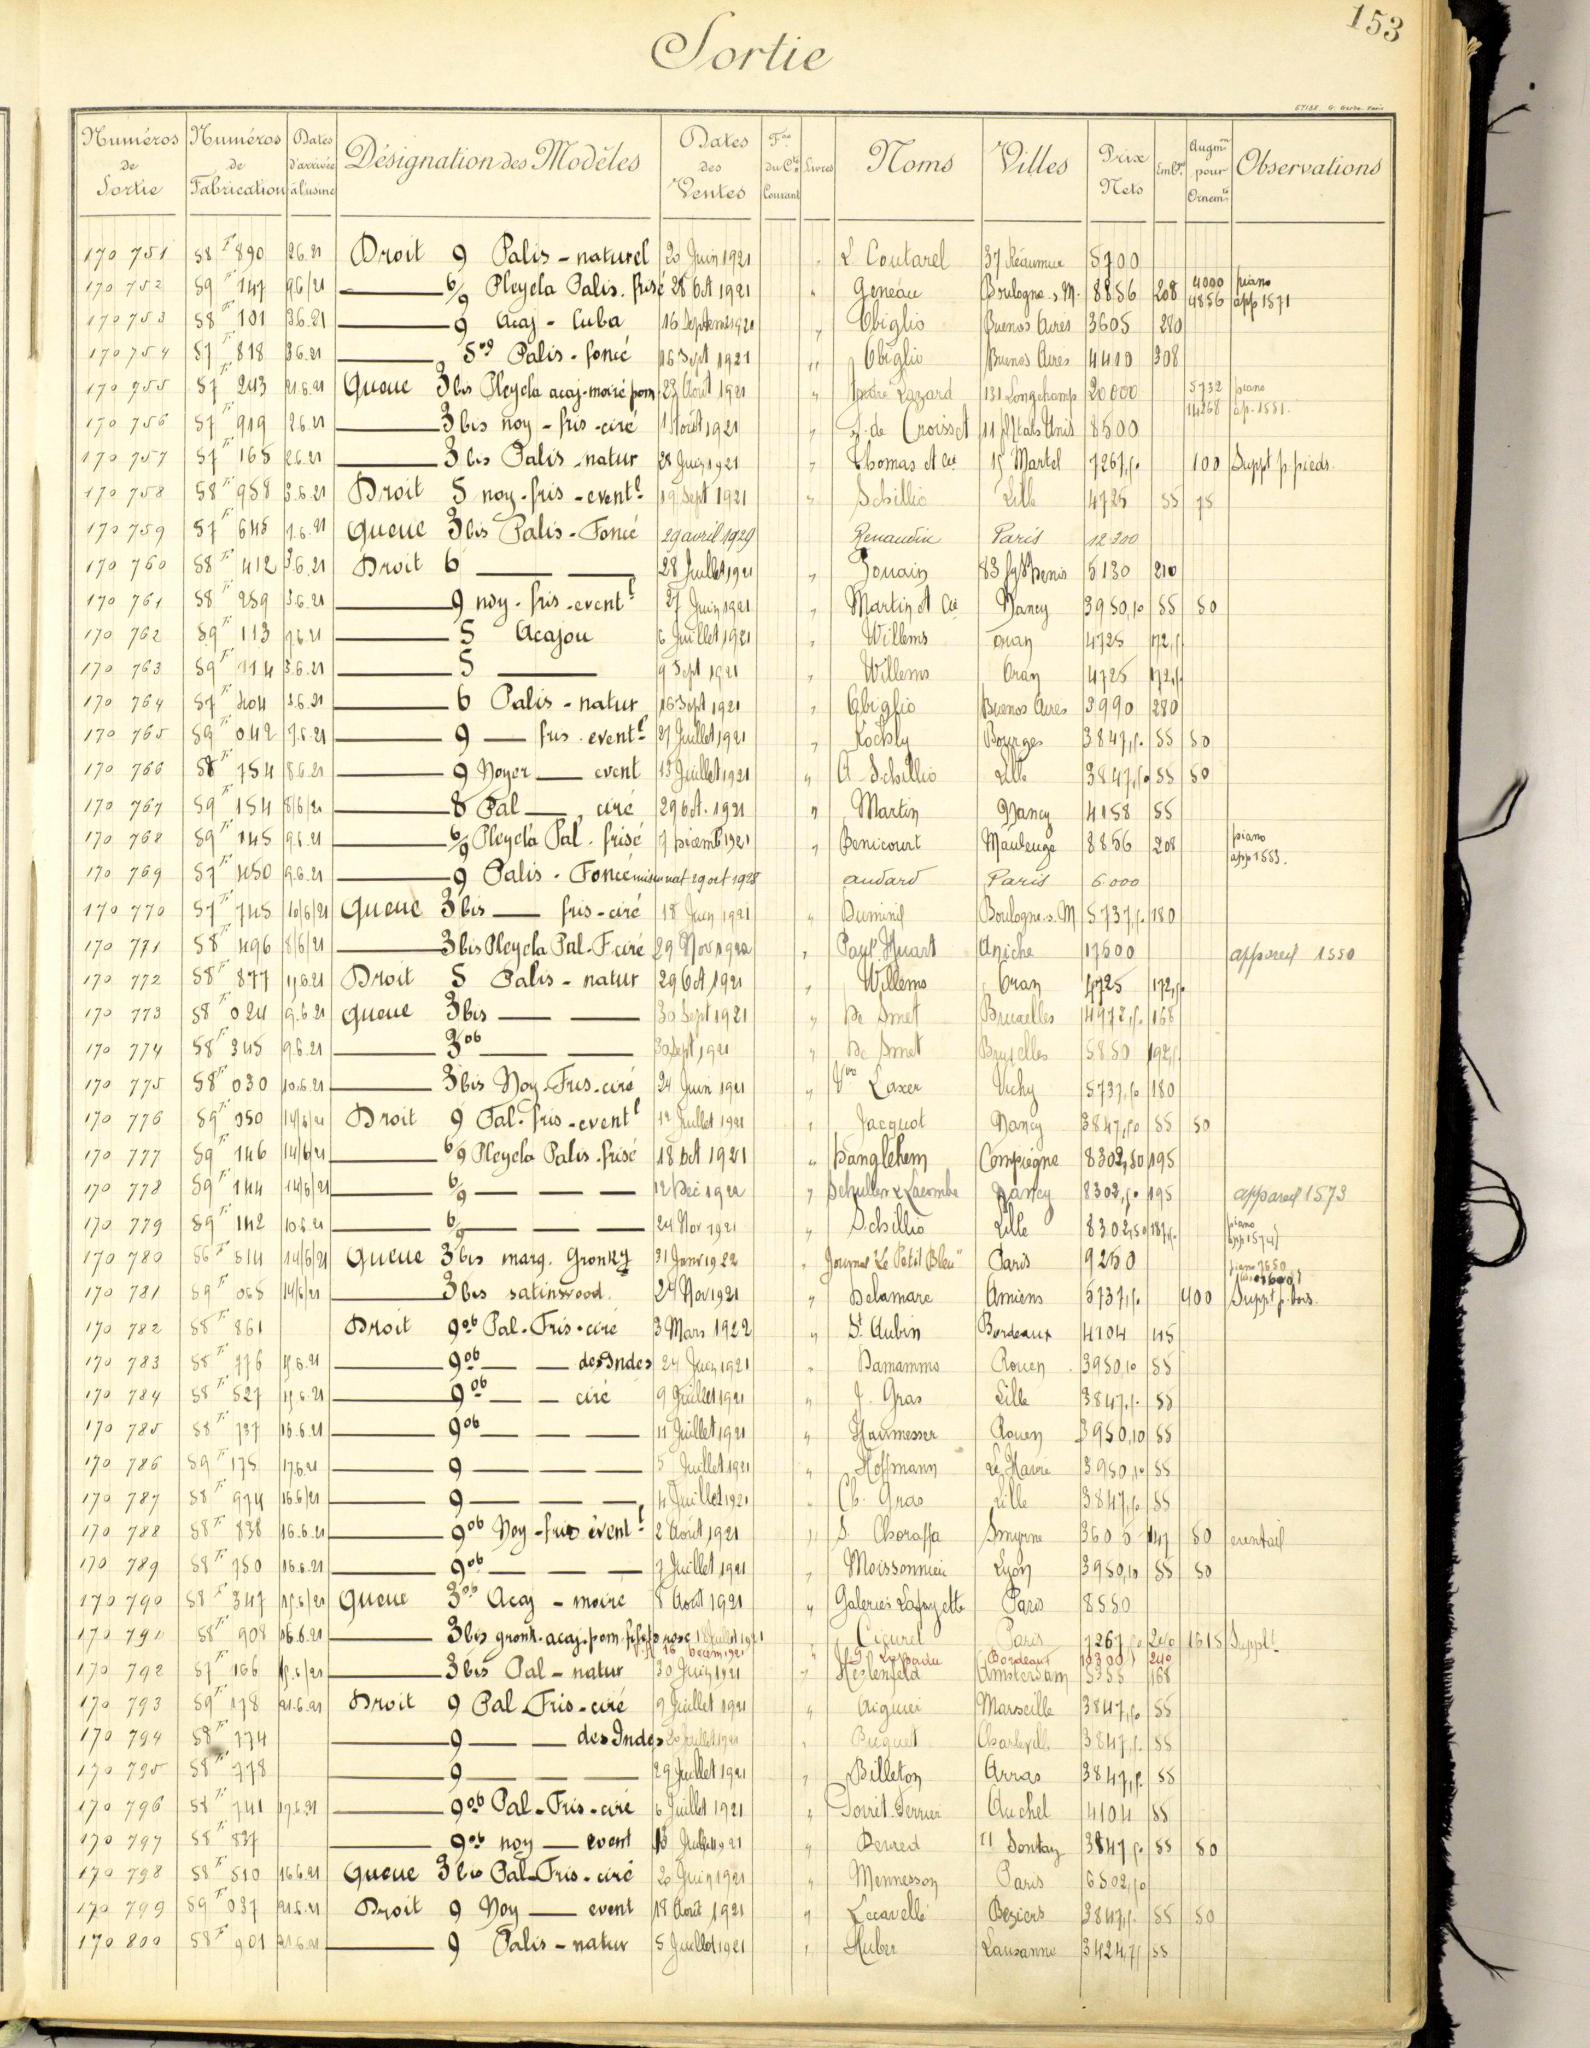 153
Sortie
Numéros de Sortie Numéros de Fabrication Dates d'arrivée à l'usine Désignation des Modèles Dates des Ventes Courant Livres Noms Villes Prix Nets Augm.on pour Ornem.ts Observations
170 751 58 F 890 2.6.21 Droit 9 Palis - naturel 20 Juin 1921 " L Coutarel 37 Réaumur 5700
170 752 59 F 147 9.6/21 — 6/9 Pleyela Palis. frisé 28 Oct 1921 " Geneau Boulogne s. M. 8856 208 4000 4856 piano app 1571
170 753 58 F 101 3.6.21 — 9 Acaj - Cuba 16 Septem 1921 " Obiglio Buenos Aires 3605 280
170 754 57 F 818 3.6.21 — 5 Palis - foncé 16 Sept 1921 " Obiglio Buenos Aires 4410 308
170 755 57 F 243 21.6.21 Queue 3 bis Pleyela acaj-moiré pom. 23 Août 1921 " Lazard 131 Longchamp 20000 5732 14268 piano ap. 1551.
170 756 57 F 919 2.6.21 — 3 bis noy - fris - ciré 1 Août 1921 " de Croisset 11 Etats Unis 8500
170 757 57 F 165 2.6.21 — 3 bis Palis - natur 28 Juin 1921 " Thomas et Cie 15 Martel 7267,50 100 Suppt p. pieds.
170 758 58 F 958 3.6.21 Droit 5 noy - fris - event.l 19 Sept 1921 " Schillio Lille 4725 55 75
170 759 57 F 645 1.6.21 Queue 3 bis Palis - Foncé 29 avril 1929 Renaudin Paris 12 200
170 760 58 F 412 3.6.21 Droit 6 — — 28 Juillet 1921 " Jouain 83 fg St Denis 5130 210
170 761 58 F 259 3.6.21 — 9 noy - fris - event.l 27 Juin 1921 " Martin et Cie Nancy 3950,10 55 50
170 762 59 F 113 9.6.21 — 5 Acajou 6 Juillet 1921 " Willems Oran 4725 172,50
170 763 59 F 114 3.6.21 — 5 — 9 Sept 1921 " Willems Oran 4725 172,50
170 764 57 F 404 3.6.21 — 6 Palis - natur 16 Sept 1921 " Obiglio Buenos Aires 3990 280
170 765 59 F 042 7.6.21 — 9 — fris - event.l 27 Juillet 1921 " Kochly Bourges 3847,50 55 50
170 766 58 F 754 8.6.21 — 9 Noyer — event 15 Juillet 1921 " A Schillio Lille 3847,50 55 50
170 767 59 F 154 8/6/21 — 8 Pal — ciré 29 Oct. 1921 " Martin Nancy 4158 55
170 768 59 F 145 9.6.21 — 6/9 Pleyela Pal. frisé 7 Décemb 1921 " Benicourt Maubeuge 8856 208 piano app 1553.
170 769 57 F 450 9.6.21 — 9 Palis - Foncé mis en nat 29 oct 1928 audard Paris 6.000
170 770 57 F 745 10/6/21 Queue 3 bis — fris - ciré 18 Juin 1921 " Duminil Boulogne. s. M 5737,50 180
170 771 58 F 496 8/6/21 — 3 bis Pleyela Pal-F-ciré 29 Nov 1922 " Paul Huart Aniche 17500 appareil 1550
170 772 58 F 877 11.6.21 Droit 5 Palis - natur 29 Oct 1921 " Willems Oran 4725 172,50
170 773 58 F 024 9.6.21 Queue 3 bis — — 30 Sept 1921 " De Smet Bruxelles 4972,50 168
170 774 58 F 345 9.6.21 — 3 ob — — 30 Sept 1921 " De Smet Bruxelles 5850 192,50
170 775 58 F 030 10.6.21 — 3 bis Noy - Fris - ciré 24 Juin 1921 " Vve Laxer Vichy 5737,50 180
170 776 59 F 050 14/6/21 Droit 9 Pal - fris - event.l 12 Juillet 1921 " Jacquot Nancy 3847,50 55 50
170 777 59 F 146 14/6/21 — 6/9 Pleyela Palis - frisé 18 Oct 1921 " Danglehem Compiègne 8302,50 195
170 778 59 F 144 14/6/21 — 6/9 — — — 12 Dec 1922 " Schuller & Lacombe Nancy 8302,50 195 appareil 1573
170 779 59 F 142 10.6.21 — 6/9 — — — 24 Nov 1921 " Schillio Lille 8302,50 187,50 piano app 1574
170 780 56 F 814 14/6/21 Queue 3 bis marq. Gronky 31 Janv 1922 " Journal "Le Petit Bleu" Paris 9250
170 781 59 F 065 14/6/21 — 3 bis satinwood. 24 Nov 1921 " Delamare Amiens 5737,50 400 Suppt p. bois.
170 782 58 F 861 Droit 9 ob Pal - Fris - ciré 3 Mars 1922 " St Aubin Bordeaux 4104 45
170 783 58 F 776 15.6.21 — 9 ob — — des Indes 24 Juin 1921 " Damamme Rouen 3950,10 55
170 784 58 F 527 15.6.21 — 9 ob — — ciré 9 Juillet 1921 " J. Gras Lille 3847,50 55
170 785 58 F 737 16.6.21 — 9 ob — — — 11 Juillet 1921 " Haumesser Rouen 3950,10 55
170 786 59 F 175 17.6.21 — 9 — — — 5 Juillet 1921 " Hoffmann Le Havre 3950,10 55
170 787 58 F 974 16.6/21 — 9 — — — 4 Juillet 1921 " Ch. Gras Lille 3847,50 55
170 788 58 F 838 16.6.21 — 9 ob Noy - fris event.l 2 Août 1921 " S. Choraffa Smyrne 3605 147 50 eventail
170 789 58 F 750 16.6.21 — 9 ob — — — 7 Juillet 1921 " Moissonnier Lyon 3950,10 55 50
170 790 58 F 347 15.6/21 Queue 3 ob Acaj - moiré 8 Août 1921 " Galeries Lafayette Paris 8550
170 791 58 F 908 16.6.21 — 3 bis gronk. acaj. pom. rose Juillet 1921 " Cicurel Paris 7267,50 240 1615 Supplt
16 Décem 1921 Bordeaux 10300 240
170 792 57 F 166 15.6/21 — 3 bis Pal - natur 30 Juin 1921 " Heslenfeld Amsterdam 5355 168
170 793 59 F 178 21.6.21 Droit 9 Pal - Fris - ciré 9 Juillet 1921 " Aiguier Marseille 3847,50 55
170 794 58 F 774 — 9 — — des Indes 20 Juillet 1921 " Buquet Charleville 3847,50 55
170 795 58 F 778 — 9 — — — 29 Juillet 1921 " Billeton Arras 3847,50 55
170 796 58 F 741 17.6.21 — 9 ob Pal - Fris - ciré 6 Juillet 1921 " Poiret-Ferrier Auchel 4104 55
170 797 58 F 837 — 9 ob noy — event 13 Juillet 1921 " Derred 11 Dontay 3847,50 55 50
170 798 58 F 510 16.6.21 Queue 3 bis Pal - Fris - ciré 20 Juin 1921 " Mennesson Paris 6502,50
170 799 59 F 037 21.6.21 Droit 9 Noy — event 18 Août 1921 " Lecavellé Beziers 3847,50 55 50
170 800 58 F 901 21.6.21 — 9 Palis - natur 5 Juillet 1921 " Huber Lausanne 3424,75 55